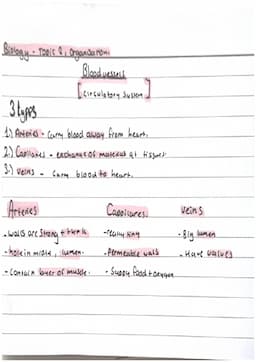 Biology - Topic 2: Organisation.
Blood vessels
[circulatory system]
3 types
1.) Arteries - Carry blood away from heart.
2.) Capillaries - exchange of material at tissues
3.) Veins - carry blood to heart.
Arteries Capillaries Veins
- walls are strong + thick - really tiny - Big lumen
- hole in middle, lumen. - Permeable walls - Have valves
- Contain layer of muscle. - Supply food + oxygen